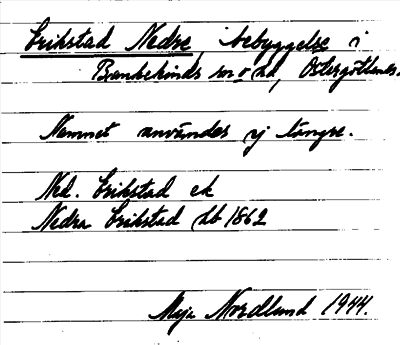 Erikstad Nedre, bebyggelse i
Bankekinds sn o hd, Östergötlands.
Namnet användes ej längre.
Ned. Erikstad ek
Nedra Erikstad hb 1862
Maja Nordlund 1944.